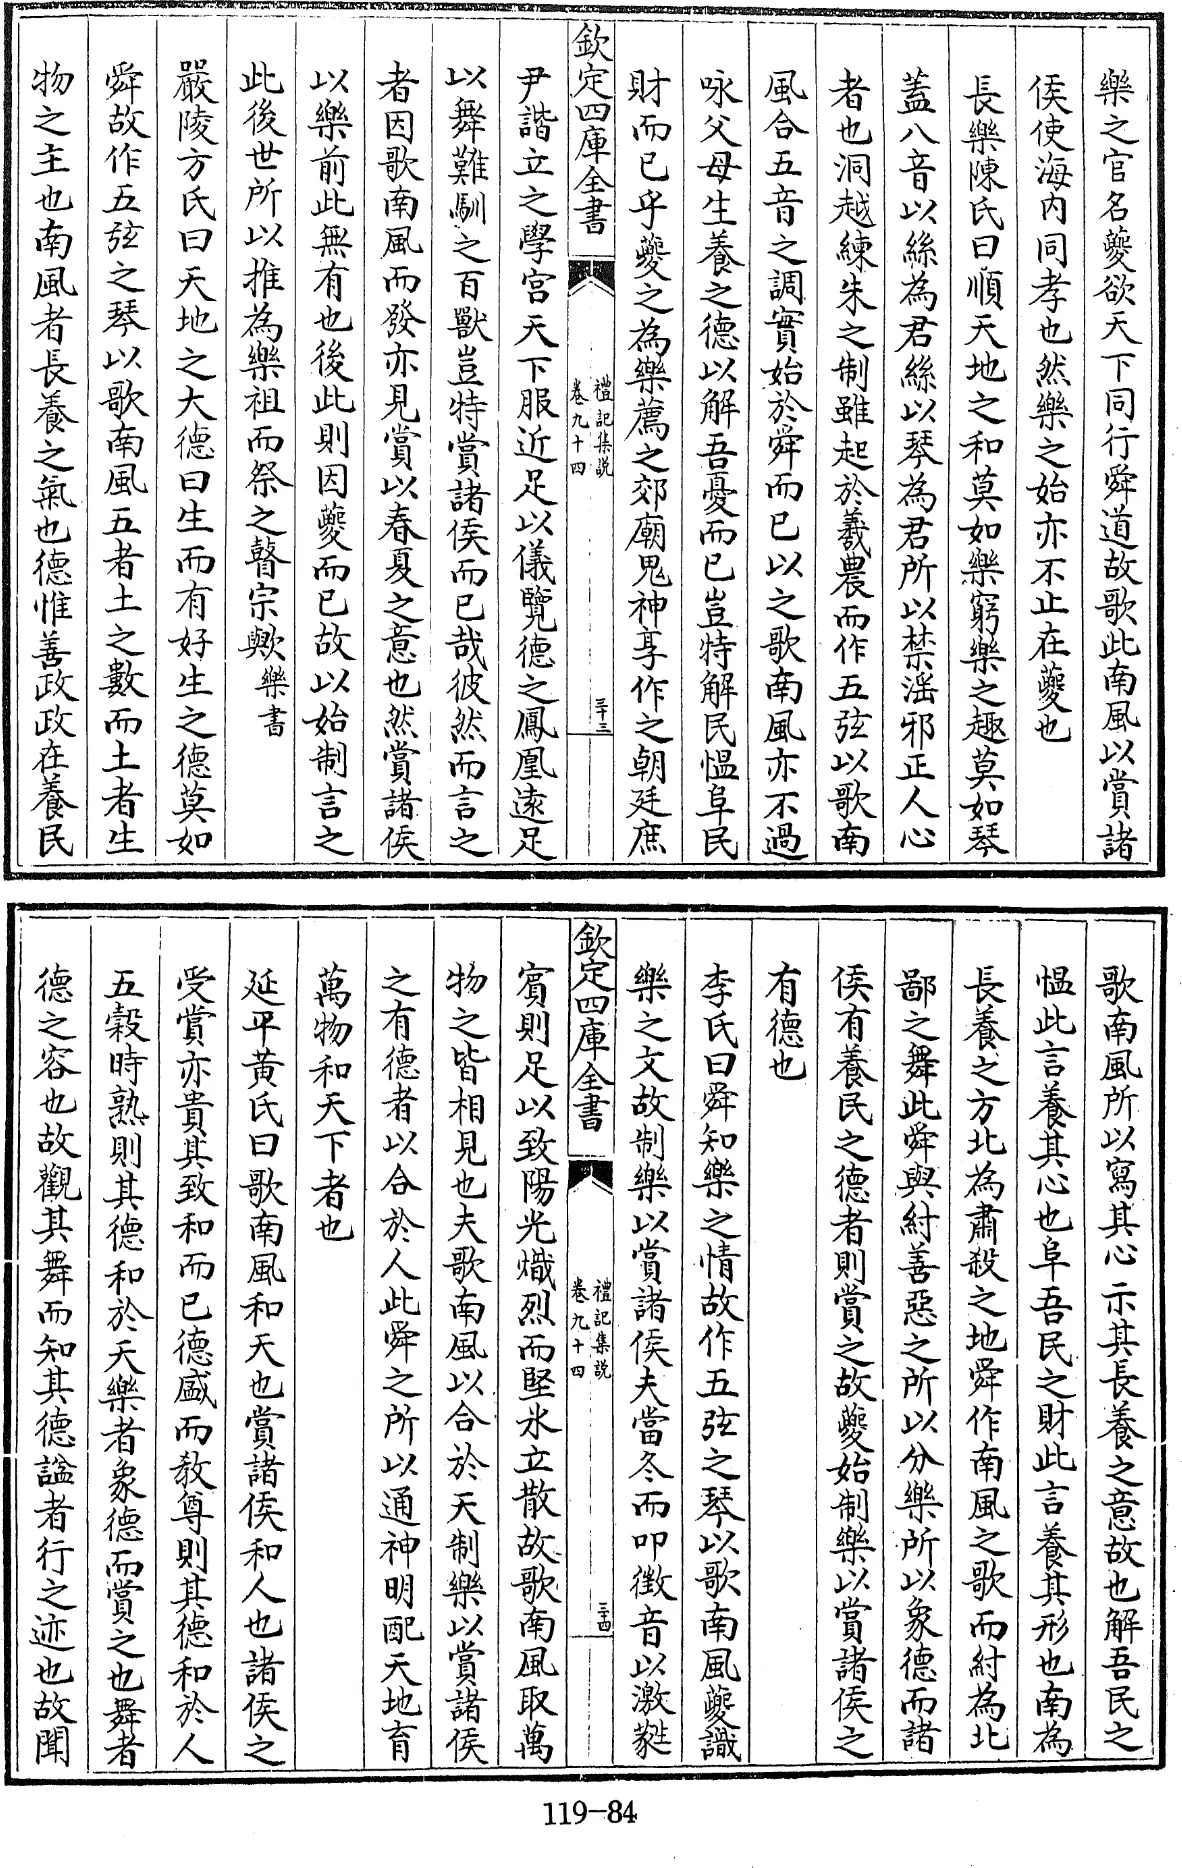 樂之官名夔欲天下同行舜道故歌此南風以賞諸
侯使海内同孝也然樂之始亦不止在夔也
長樂陳氏曰順天地之和莫如樂窮樂之趣莫如琴
蓋八音以絲為君絲以琴為君所以禁滛邪正人心
者也洞越練朱之制雖起於羲農而作五弦以歌南
風合五音之調實始於舜而已以之歌南風亦不過
咏父母生養之德以解吾憂而已豈特解民愠阜民
財而已乎夔之為樂薦之郊廟鬼神享作之朝廷庶
欽定四庫全書
禮記集説
卷九十四
三十三
尹諧立之學宫天下服近足以儀覽德之鳳凰逺足
以舞難馴之百獸豈特賞諸侯而已哉彼然而言之
者因歌南風而發亦見賞以春夏之意也然賞諸侯
以樂前此無有也後此則因夔而已故以始制言之
此後世所以推為樂祖而祭之瞽宗歟樂書
嚴陵方氏曰天地之大德曰生而有好生之德莫如
舜故作五弦之琴以歌南風五者土之數而土者生
物之主也南風者長養之氣也德惟善政政在養民
歌南風所以寫其心示其長養之意故也解吾民之
愠此言養其心也阜吾民之財此言養其形也南為
長養之方北為肅殺之地舜作南風之歌而紂為北
鄙之舞此舜與紂善惡之所以分樂所以象德而諸
侯有養民之德者則賞之故夔始制樂以賞諸侯之
有德也
李氏曰舜知樂之情故作五弦之琴以歌南風夔識
樂之文故制樂以賞諸侯夫當冬而叩徵音以激蕤
欽定四庫全書
禮記集説
卷九十四
三十四
賓則足以致陽光熾烈而堅氷立散故歌南風取萬
物之皆相見也夫歌南風以合於天制樂以賞諸侯
之有德者以合於人此舜之所以通神明配天地育
萬物和天下者也
延平黄氏曰歌南風和天也賞諸侯和人也諸侯之
受賞亦貴其致和而已德盛而教尊則其德和於人
五穀時熟則其德和於天樂者象德而賞之也舞者
德之容也故觀其舞而知其德諡者行之迹也故聞
119-84